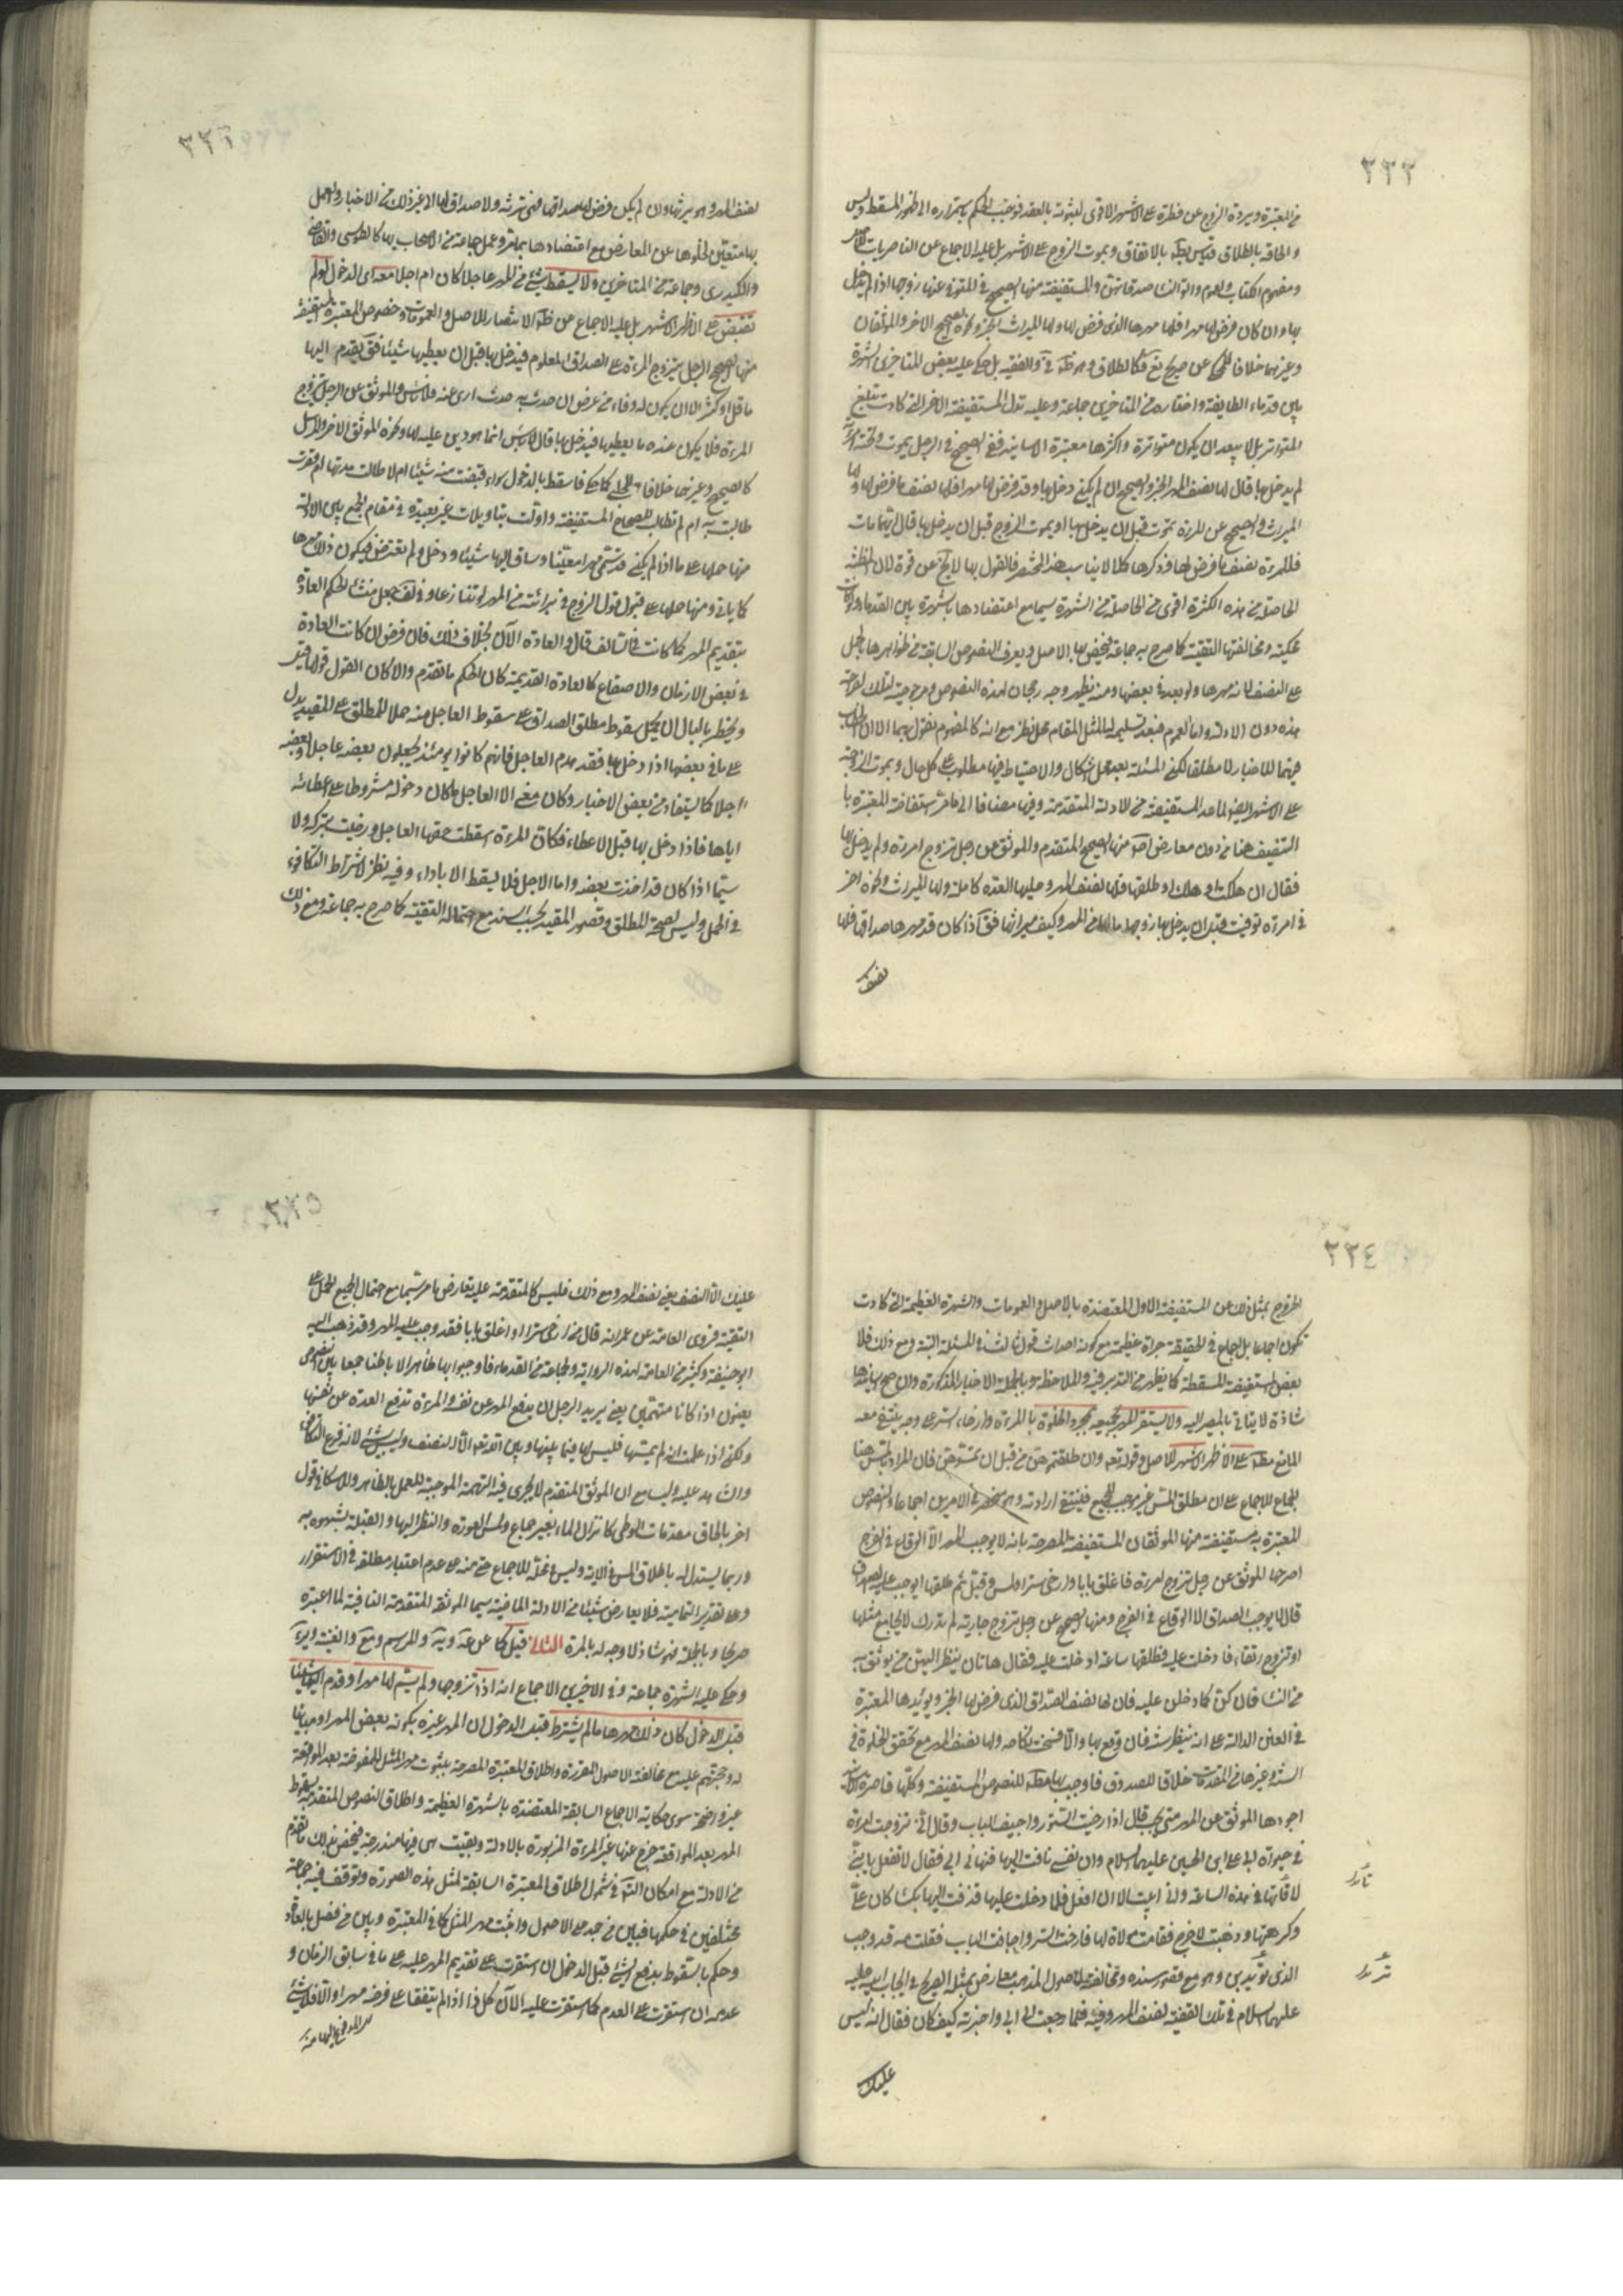 ٢٣٢
من المعتبرة وبردة الزوج عن فطرة على الاشهر الاقوى لثبوته بالعقد فوجب الحكم باستمراره الى ظهور المسقط وليس
والحاقه بالطلاق قياس بالاتفاق وبموت الزوج على الاشهر بل عليه الاجماع عن الناصريات
ومفهوم الكتاب والعموم وآتوا النساء صدقاتهن والمستفيضة منها الصحيح في المتوفى عنها زوجها اذا لم يدخل
بها وان كان فرض لها مهرا فلها مهرها الذي فرض لها ولها الميراث الخبر ونحوه الصحيح الاخر والموثقان
وغيرهما خلافا للمحكي عن صريح فكالطلاق وهو والفقيه بل حكى عليه بعض المتاخرين الشهرة
بين قدماء الطايفة واختاره من المتاخرين جماعة وعليه تدل المستفيضة الاخر التي كادت تبلغ
المتواتر بل لا يبعد ان يكون متواترة واكثرها معتبرة الاسانيد ففي الصحيح في الرجل يموت وتحته امرأة
لم يدخل بها قال لها نصف المهر الخبر والصحيح ان لم يكن دخل بها وقد فرض لها مهرا فلها نصف ما فرض لها ولها
الميراث والصحيح عن المرءة تموت قبل ان يدخل بها او يموت الزوج قبل ان يدخل بها قال ايهما مات
فللمرءة نصف ما فرض لها وذكرها كلا لا يناسب هذا المختصر فالقول بها لا يخ عن قوة لان المظنة
الحاصلة من هذه الكثرة اقوى من الحاصلة من الشهرة سيما مع اعتضادها بالشهرة بين القدماء
محكية ومخالفتها التقية كما صرح به جماعة فيخص بها الاصل ويصرف النصوص السابقة عن ظواهرها بالحمل
على النصف لانه مهرها ولو بعد في بعضها ومنه يظهر وجه رجحان لهذه النصوص ومرجوحية لتلك لصراحة
هذه دون الاولة واما العموم فبعد تسليمه لمثل المقام محل نظر مع انه كالمفهوم نقول بهما الا ان
فيهما للاخبار لا مطلقا لكن المسئلة بعد محل اشكال والاحتياط فيها مطلوب على كل حال وبموت الزوجة
على الاشهر ايضا لما عدا المستفيضة من الادلة المتقدمة وفيها مضافا الى ما مر استفاضة المعتبرة
التنصيف هنا من دون معارض اصلا منها الصحيح المتقدم والموثق عن رجل تزوج امرءة ولم يدخل بها
فقال ان هلكت او هلك او طلقها فلها نصف المهر وعليها العدة كاملة ولها الميراث ونحوه اخر
في امرءة توفيت قبل ان يدخل بها زوجها ما لها من المهر وكيف ميراثها فق اذا كان قد مهرها صداقا فلها
نصف
٢٣٣
نصف المهر وهو يرثها وان لم يكن فرض لها صداقا فهي ترثه ولا صداق لها الى غير ذلك من الاخبار والعمل
بها متعين لخلوها عن المعارض مع اعتضادها بما مر وعمل جماعة من الاصحاب بها كالطوسي والقاضي
والكيدري وجماعة من المتاخرين ولا يسقط شيء من المهر عاجلا كان ام اجلا معه اي الدخول لو لم
تقبض على الاظهر الاشهر بل عليه الاجماع عن ظ الانتصار للاصل والعمومات وخصوص المعتبرة المستفيضة
منها الصحيح الرجل يتزوج المرءة على الصداق المعلوم فيدخل بها قبل ان يعطيها شيئا فق يقدم اليها
ما قل او كثر الا ان يكون له وفاء من عرض ان حدث به حدث ادى عنه فلا باس والموثق عن الرجل يتزوج
المرءة فلا يكون عنده ما يعطيها فيدخل بها قال لا باس انما هو دين عليه لها ونحوه الموثق الاخر والمرسل
كالصحيح وغيرهما خلافا للمحكي كما حكي فاسقطه بالدخول سواء قبضت منه شيئا ام لا طالت مدتها ام قصرت
طالبت به ام لم تطالب للصحاح المستفيضة واولت بتاويلات غير بعيدة في مقام الجمع بين الادلة
منها حملها على ما اذا لم يكن قد سمى مهرا معينا وساق اليها شيئا ودخل ولم تعترض فيكون ذلك مهرها
كما ياتي ومنها حملها على قبول قول الزوج في برائته من المهر لو تنازعا وفي لف جعل منشأ الحكم العادة
بتقديم المهر كما كانت في السالف قال والعادة الآن بخلاف ذلك فان فرض ان كانت العادة
في بعض الازمان والاصقاع كالعادة القديمة كان الحكم ما تقدم والا كان القول قولها
ويخطر بالبال ان يحمل سقوط مطلق الصداق على سقوط العاجل منه حملا للمطلق على المقيد يدل
على ما في بعضها اذا دخل بها فقد هدم العاجل فانهم كانوا يومئذ يجعلون بعضه عاجلا وبعضه
اجلا كما يستفاد من بعض الاخبار وكان معنى الا العاجل ما كان دخوله مشروطا على اعطائه
اياها فاذا دخل بها قبل الاعطاء فكان المرءة اسقطت حقها العاجل ورضيت بتركه ولا
سيما اذا كان قد اخذت بعضه واما الاجل فلا يسقط الا باداء وفيه نظر لاشتراط التكافوء
في الحمل وليس لصحة المطلق وقصور المقيد بحسب السند مع احتماله التقية كما صرح به جماعة ومع ذلك
٢٣٤
الخروج بمثل ذلك عن المستفيضة الاول المعتضدة بالاصل والعمومات والشهرة العظيمة التي كادت
تكون اجماعا بل اجماع في الحقيقة جرأة عظيمة مع كونه احداث قول ثالث في المسئلة البتة ومع ذلك فلا
بعض المستفيضة المسقطة كما يظهر من التدبر فيه والملاحظة وبالجملة الاخبار المذكورة وان صح اسانيدها
شاذة لا يتاتى بالمصير اليه ولا يستقر المهر جميعه بمجرد الخلوة بالمرءة وارخاء الستر على وجه ينتفي معه
المانع مطلقا على الاظهر الاشهر للاصل وقوله تعه وان طلقتموهن من قبل ان تمسوهن فان المراد بالمس هنا
الجماع للاجماع على ان مطلق المس غير موجب للجميع فلينتفي ارادته وهو منحصر في الامرين اجماعا والنصوص
المعتبرة به مستفيضة منها الموثقان المستفيضة المصرحة بانه لا يوجب المهر الا الوقاع في الفرج
اصرحها الموثق عن رجل تزوج امرءة فاغلق بابا وارخى سترا ولمس وقبل ثم طلقها ايوجب عليه الصداق
قال لا يوجب الصداق الا الوقاع في الفرج ومنها الصحيح عن رجل تزوج جارية لم تدرك لا يجامع مثلها
او تزوج رتقاء فادخلت عليه فطلقها ساعة ادخلت عليه فقال هاتان ينظر اليهن من يوثق به
من النساء فان كن كما دخلن عليه فان لها نصف الصداق الذي فرض لها الخبر ويؤيدها المعتبرة
في العنن الدالة على انه ينتظر سنة فان وقع بها والا فسخت نكاحه ولها نصف المهر مع تحقق الخلوة في
السنة وغيرها من المقدمات خلافا للصدوق فاوجب بها مطلقا للنصوص المستفيضة وكلها قاصرة
اجودها الموثق عن المهر متى يجب قال اذا ارخيت الستور واجيف الباب وقال اني تزوجت امرءة
في حيوة ابي على ابن الحسين عليهما السلام وان نفسي تاقت اليها فنهاني ابي فقال لا تفعل يا بني
لا تاتها في هذه الساعة واني ابيت الا ان افعل فلما دخلت عليها قذفت اليها بكساء كان علي
وكرهتها وذهبت لاخرج فقامت مولاة لها فارخت الستر واجافت الباب فقلت مه قد وجب
الذي تريدين وهو مع قصور سنده ومخالفته لاصول المذهب معارض بمثله الصريح في ايجاب ابيه عليه
عليهما السلام في تلك القضية نصف المهر وفيه فلما رجعت الى ابي واخبرته كيف كان فقال انه ليس
عليك
٢٣٥
عليك الا النصف يعني نصف المهر ومع ذلك فليس كالمتقدمة عليه تعارض ما مر سيما مع احتمال الجميع الحمل على
التقية فروى العامة عن عمر انه قال من ارخى سترا او اغلق بابا فقد وجب عليه المهر وقد ذهب اليه
ابو حنيفة وكثير من العامة لهذه الرواية ولجماعة من القدماء فاوجبوا بها ظاهرا لا باطنا جمعا بين النصوص
يعنون اذا كانا متهمين يعني يريد الرجل ان يدفع المهر عن نفسه والمرءة تدفع العدة عن نفسها
ولكن اذا علمت انه لم يمسها فليس لها فيما بينها وبين الله تعه الا النصف وليس بشيء لانه فرع التكافئ
والشاهد عليه وليسا مع ان الموثق المتقدم لا يجري فيه التهمة الموجبة للعمل بالظاهر وللاسكافي قول
اخر بالحاق مقدمات الوطي كانزال الماء بغير جماع ولمس العورة والنظر اليها والقبلة بشهوة به
وربما يستدل له باطلاق المس في الاية وليس في محله للاجماع حتى منه على عدم اعتبار مطلقه في الاستقرار
وعلى تقدير التمامية فلا يعارض شيئا من الادلة الماضية سيما الموثقة المتقدمة النافية لما اعتبره
صريحا وبالجملة فهو شاذ لا وجه له بالمرة الثالثة قيل كما عن والمراسم
وحكى عليه الشهرة جماعة وفي الاخيرين الاجماع انه اذا تزوجها ولم يسم لها مهرا وقدم اليها شيئا
قبل الدخول كان ذلك مهرها ما لم يشترط قبل الدخول ان المهر غيره بكونه بعض المهر او مباينا
له وحجتهم عليه مع مخالفته الاصول المقررة واطلاق المعتبرة المصرحة بثبوت مهر المثل للمفوضة بعد المواقعة
غير واضحة سوى حكاية الاجماع السابقة المعتضدة بالشهرة العظيمة واطلاق النصوص المتقدمة بسقوط
المهر بعد المواقعة خرج عنها غير المرءة المزبورة بالادلة وبقيت هي فيها مندرجة فيخص بذلك ما تقدم
من الادلة مع امكان التأمل في شمول اطلاق المعتبرة السابقة لمثل هذه الصورة وتوقف فيه جماعة
مختلفين في حكمها فبين من جمد على الاصول واثبت مهر المثل كما في المعتبرة وبين من فصل بالعادة
وحكم بالسقوط بدفع الشيء قبل الدخول ان استقرت على تقديم المهر عليه على ما في سابق الزمان و
عدمه ان استقرت على العدم كما استقرت عليه الآن كل ذا اذا لم يتفقا على فرضه مهرا والا فلا شيء